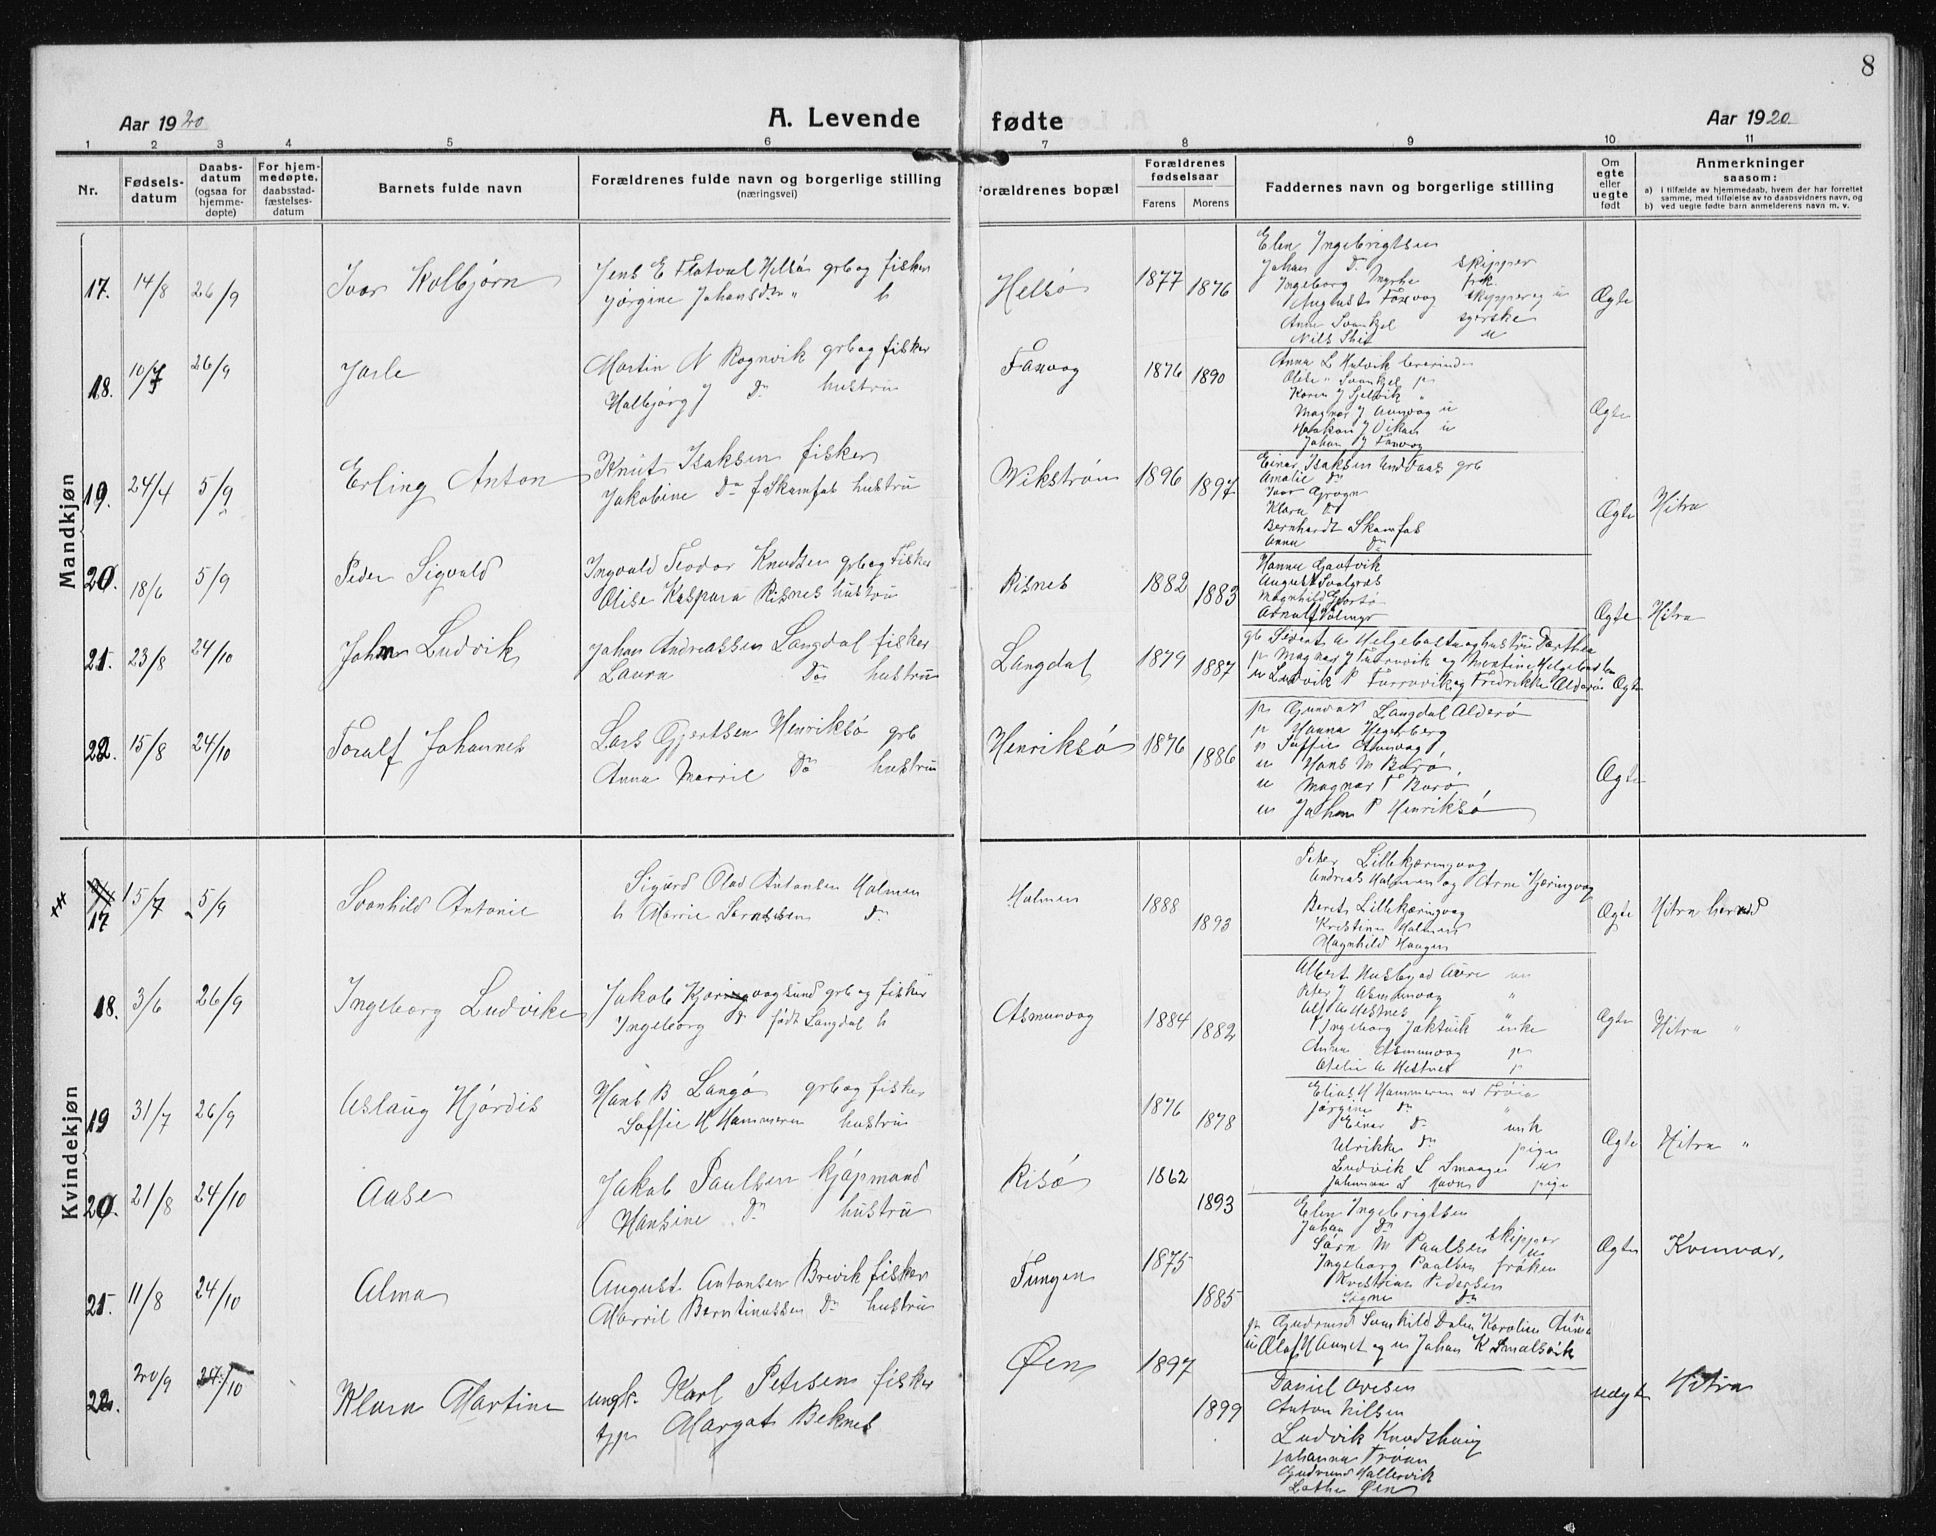 8
Aar 1920
A. Levende fødte
Aar 1920
1 2 3 4 5 6 7 8 9 10 11
Nr.
Fødsels-datum
Daabs-datum (ogsaa for hjemme-døpte)
For hjem-medøpte, daabsstad-fæstelses-datum
Barnets fulde navn
Forældrenes fulde navn og borgerlige stilling
(næringsvei)
Forældrenes bopæl
Forældrenes fødselsaar
Farens Morens
Faddernes navn og borgerlige stilling
Om egte eller uegte født
Anmerkninger
saasom:
a) I tilfælde av hjemmedaab, hvem der har forrettet
samme, med tilføielse av to daabsvidners navn, og
b) ved uegte fødte barn anmelderens navn m. v.
Mandkjøn
17. 14/8 26/9 Ivar Kolbjørn
Jens E Flatval Helsø grb og fisker
Jørgine Johansdtr " h
Helsø 1877 1876
Elen Ingebrigtsen
Johan Do skipper
Ingeborg Myrhe frk.
August Faxvog skipper og u
Anna Svankjel syerske
Nils u
Ægte
18. 10/7 26/9 Jarle
Martin N Rognvik grb og fisker
Halbjørg J Do hustru
Faxvog 1876 1890
Anna L Hulvik
Olise " Svankjel p
Karen J "
Magnar J Aunvog u
Haakon J Vikan u
Johan J Faxvog
Ægte
19. 24/4 5/9 Erling Anton
Knut Isaksen fisker
Jakobine Do f Skamfas hustru
Vikstrøm 1896 1897
Einar Isaksen Undaas grb
Amalie Do
Ivar
Klara Do
Bernhardt Skamfas
Anna Do
Ægte Hitra
20. 18/6 5/9 Peder Sigvald
Ingvald Teodor Knudsen grb og Fisker
Olise Kaspara Risnes hustru
Risnes 1882 1883
Hanna
August
Magnhild
Arnulf
Ægte Hitra
21. 23/8 24/10 Johan Ludvik
Johan Andreassen Langdal fisker
Laura Do hustru
Langdal 1879 1887
gb Sivert A Helgebostad og hustru Dorthea
p Magnar J og Mentine
u Ludvik P og Fredrikke Alderøn
Ægte
22. 15/8 24/10 Toralf Johannes
Lars Gjertsen Henriksø grb
Anna Marril Do hustru
Henriksø 1876 1886
p Langdal Alderø
p Hanna Hegerberg
p Soffie Asmvog
u Hans M Barø
u Magnar T Barø
u Johan P Henriksø
Ægte
Kvindekjøn
17 15/7 5/9 Svanhild Antonie
Sigurd Olav Antonsen Holmen
h Marrie Do
Holmen 1888 1893
Peter Lillekjæringvog
Andreas Holmen og Arne Kjæringvog
Beret Lillekjæringvog
Kristine Holmen
Magnhild Haugen
Ægte Hitra herred
18. 3/6 26/9 Ingeborg Ludvikke
Jakob Kjøringvogsund grb og fisker
Ingeborg Do født Langdal h
Asmunvog 1884 1882
Albert Husby ad Aure um
Peter J Asmunvog "
Alf A Hestnes "
Ingeborg Jaktvik enke
Anna Asmunvog p
Otelie A Hestnes p
Ægte Hitra "
19 31/7 26/9 Aslaug Hjørdis
Hans B Langø grb og fisker
Soffie H Hammeren hustru
1876 1878
Elias H Hammeren ad Frøia
Jørgine Do "
Einar Do unk
Ulrikke Do pige
Ludvik L Smaage u
Johanna S Havn pige
Ægte Hitra "
20. 21/8 24/10 Aase
Jakob Paulsen kjøpmand
Hansine Do hustru
Risø 1862 1893
Elen Ingebrigtsen
Johan Do skipper
Sørn M Paulsen u
Ingeborg Paulsen frøken
Kristian Pedersen
Signe Do
Ægte Kvenvær.
21. 11/8 24/10 Alma
August Antonsen Brevik fisker
Marril Berntinussen Do hustru
Tungen 1875 1885
p Gudrund Svanhild Dalen Karoline Aune
u Olaf H Aunet og u Johan K Smalsvik
22. 20/9 24/10 Klara Martine
ungk. Karl Petersen fisker
Margot Beknes
Øen 1897 1899
Daniel Ovesen
Anton Nilsen
Ludvik Knudshaug
Johanna Frøan
Gudrund Hallervik
Lothe Øen
uægte Hitra